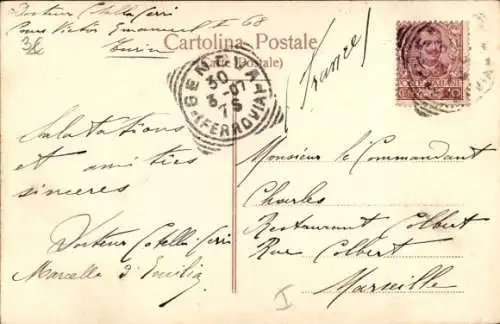 Docteur Cotella Cerri
Cours Victor Emanuel 68
Turin
Cartolina Postale
(Carte Postale)
(France)
GENOVA
30
3-07
7 S
(FERROVIA)
Salutations
et amitiés
sincères
Docteur Cotella Cerri
Marcelle d'Emilia
Monsieur le Commandant
Charles
Restaurant Colbert
Rue Colbert
Marseille